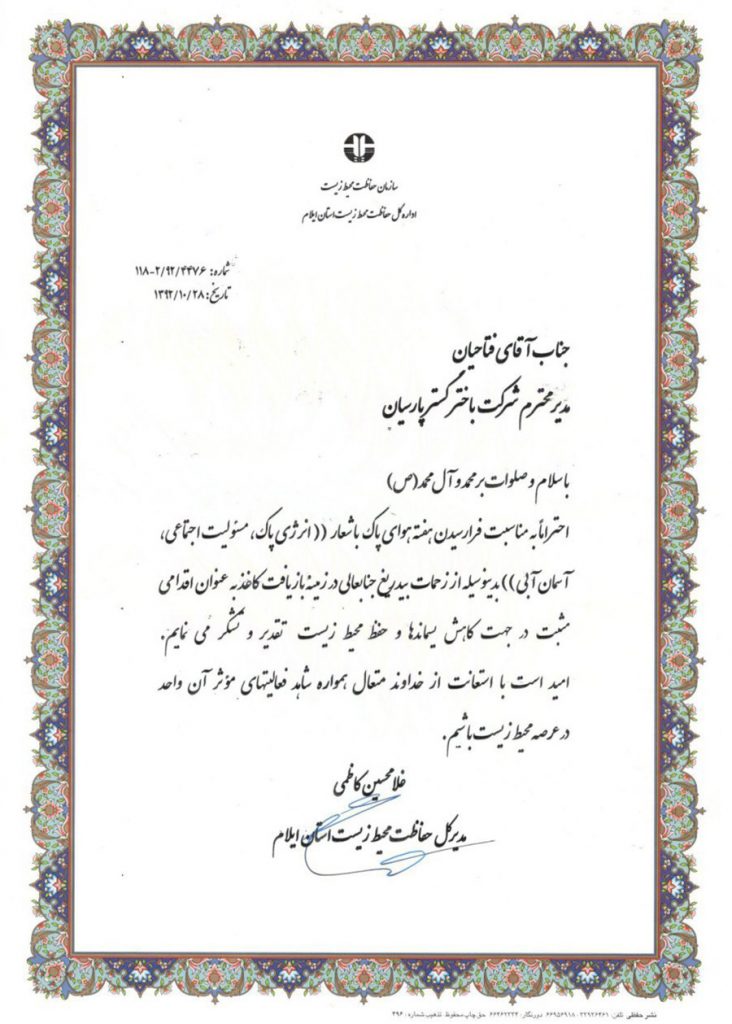 سازمان حفاظت محیط زیست
اداره کل حفاظت محیط زیست استان ایلام
شماره: ۱۱۸-۲/۹۲/۴۴۷۶
تاریخ: ۱۳۹۲/۱۰/۲۸
جناب آقای فتاحیان
مدیر محترم شرکت باختر گستر پارسیان
با سلام و صلوات بر محمد و آل محمد (ص)
احتراماً به مناسبت فرارسیدن هفته هوای پاک با شعار ((انرژی پاک، مسئولیت اجتماعی،
آسمان آبی)) بدینوسیله از زحمات بیدریغ جنابعالی در زمینهٔ بازیافت کاغذ به عنوان اقدامی
مثبت در جهت کاهش پسماندها و حفظ محیط زیست تقدیر و تشکر می نمایم.
امید است با استعانت از خداوند متعال همواره شاهد فعالیتهای مؤثر آن واحد
در عرصه محیط زیست باشیم.
غلامحسین کاظمی
مدیر کل حفاظت محیط زیست استان ایلام
نشر حفظی تلفن: ۲۲۹۲۶۳۶۱ - ۶۶۹۵۶۹۱۸ دورنگار: ۶۶۴۶۲۲۲۴ حق چاپ محفوظ. تذهیب شماره: ۳۹۶